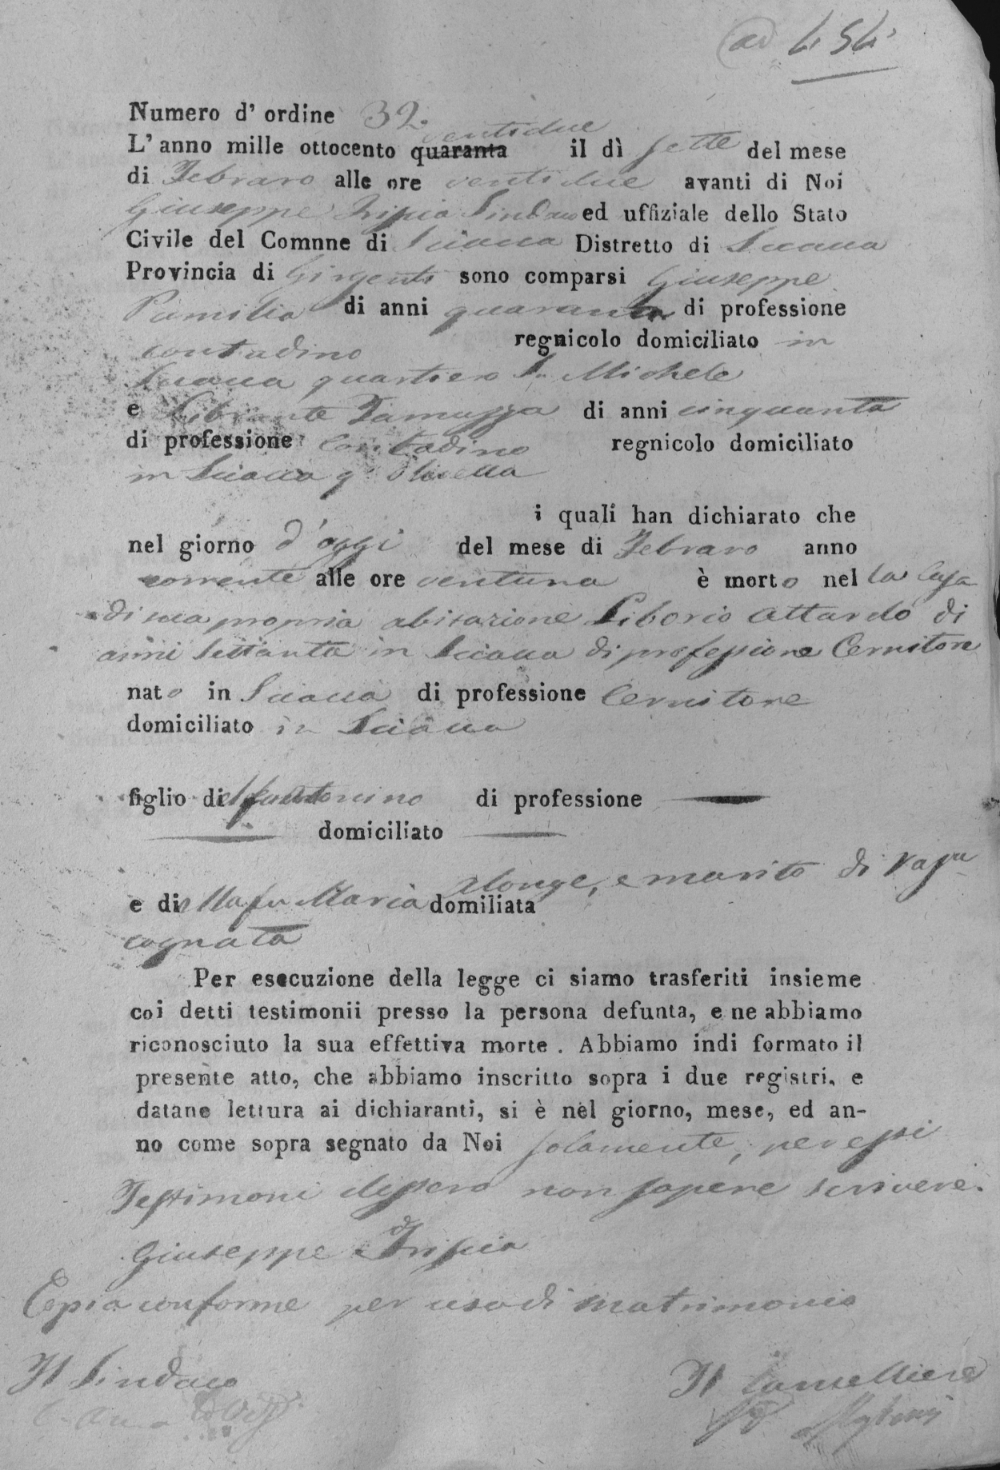 ad 454
Numero d' ordine 32.
ventidue
L' anno mille ottocento quaranta il dì sette del mese
di Febraro alle ore ventidue avanti di Noi
Giuseppe Sindaco ed uffiziale dello Stato
Civile del Comnne di Sciacca Distretto di Sciacca
Provincia di Girgenti sono comparsi Giuseppe
di anni quaranta di professione
contadino regnicolo domiciliato in
Sciacca quartiero S. Michele
e Liborante Tamuzza di anni cinquanta
di professione contadino regnicolo domiciliato
in Sciacca q.
i quali han dichiarato che
nel giorno d'oggi del mese di Febraro anno
corrente alle ore ventuna è morto nella Casa
di sua propria abitazione Liborio Attardo di
anni settanta in Sciacca di professione Cernitore
nato in Sciacca di professione Cernitore
domiciliato in Sciacca
figlio del fu Antonino di professione
domiciliato
Alonge, e marito di Rosa
e della fu Maria domiliata
cognata
Per esecuzione della legge ci siamo trasferiti insieme
coi detti testimonii presso la persona defunta, e ne abbiamo
riconosciuto la sua effettiva morte. Abbiamo indi formato il
presente atto, che abbiamo inscritto sopra i due registri, e
datane lettura ai dichiaranti, si è nel giorno, mese, ed an-
no come sopra segnato da Noi solamente, per essi
Testimoni dissero non sapere scrivere.
Giuseppe
Copia conforme per uso di matrimonio
Il Sindaco Il Cancelliere